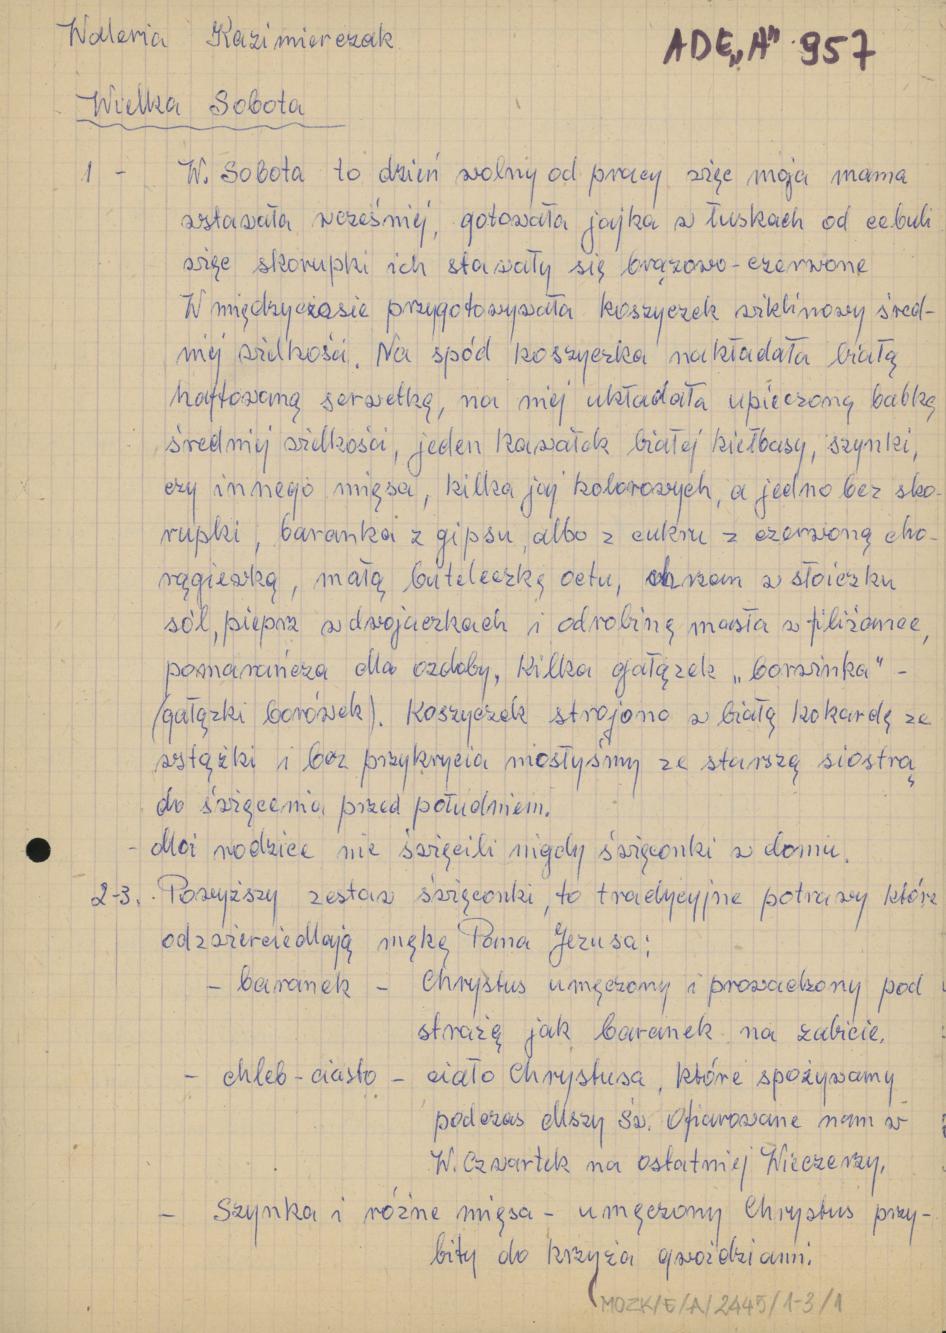 Waleria Kazimierczak
ADE „A" 957
Wielka Sobota
1 - W. Sobota to dzień wolny od pracy więc moja mama
wstawała wcześniej, gotowała jajka w łuskach od cebuli
więc skorupki ich stawały się brązowo-czerwone
W międzyczasie przygotowywała koszyczek wiklinowy śred-
niej wielkości. Na spód koszyczka nakładała białą
haftowaną serwetką, na niej układała upieczoną babkę
średniej wielkości, jeden kawałek białej kiełbasy, szynki,
czy innego mięsa, kilka jaj kolorowych, a jedno bez sko-
rupki, baranka z gipsu, albo z cukru z czerwoną cho-
rągiewką, małą buteleczkę octu, chrzan w słoiczku
sól, pieprz w dwojaczkach i odrobinę masła w filiżance,
pomarańcza dla ozdoby, kilka gałązek „borwinka" -
(gałązki borówek). Koszyczek strojono w białą kokardę ze
wstążki i bez przykrycia niosłyśmy ze starszą siostrą
do święcenia przed południem.
- Moi rodzice nie święcili nigdy święconki w domu.
2-3. Powyższy zestaw święconki, to tradycyjne potrawy które
odzwierciedlają mękę Pana Jezusa:
- baranek - Chrystus umęczony i prowadzony pod
strażą jak baranek na zabicie.
- chleb-ciasto - ciało Chrystusa, które spożywamy
podczas Mszy Św. Ofiarowane nam w
W. Czwartek na ostatniej Wieczerzy.
- Szynka i różne mięsa - umęczony Chrystus przy-
bity do krzyża gwoździami.
MOZK/E/A/2445/1-3/1